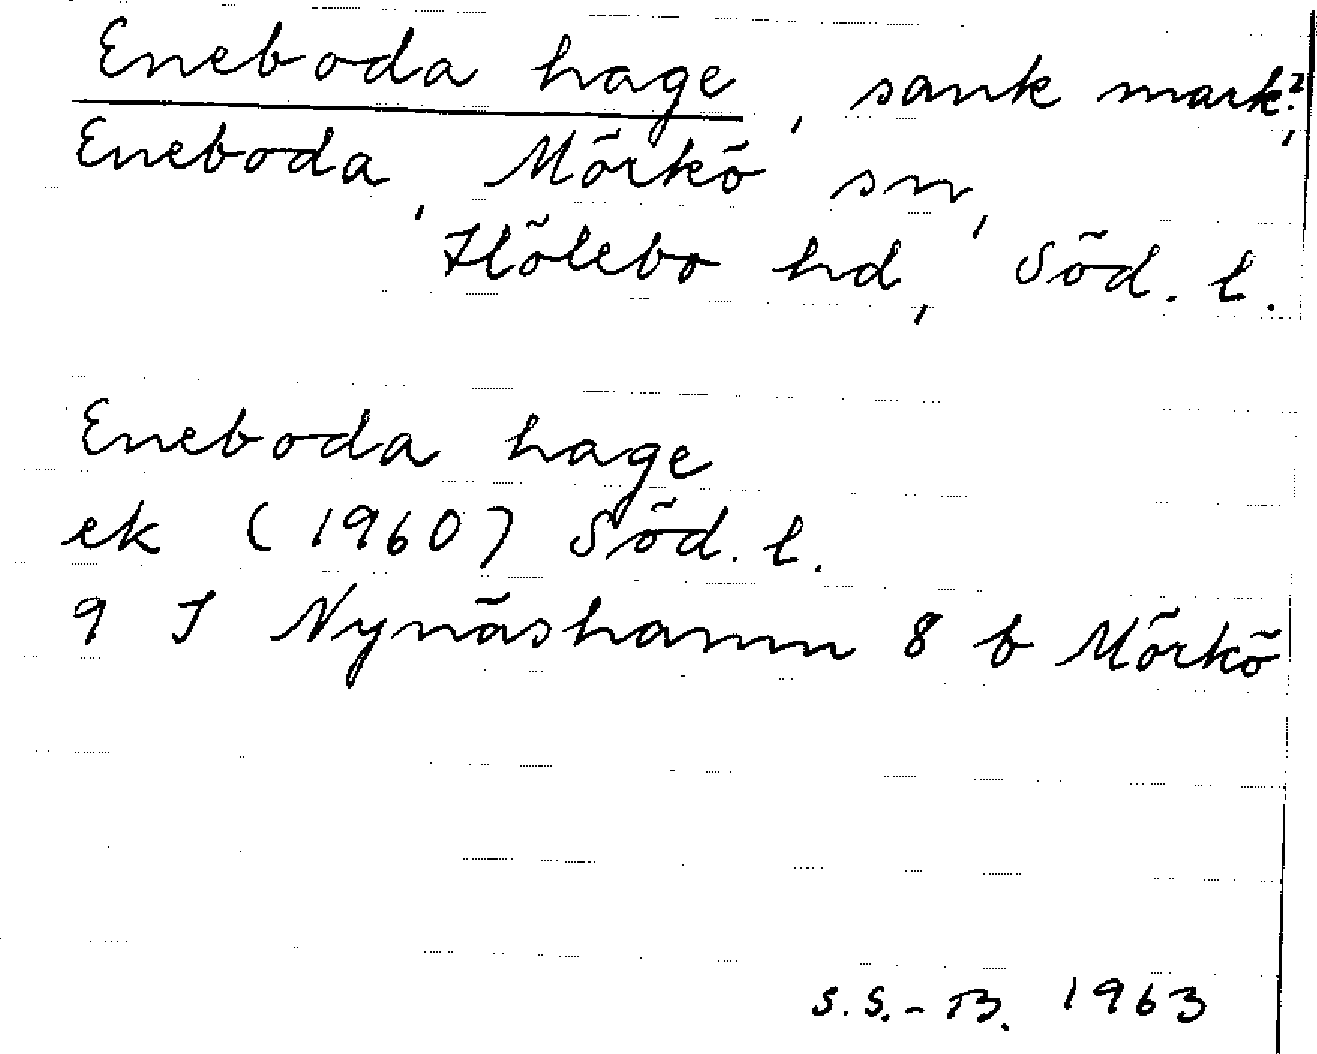 Eneboda hage, sank mark?,
Eneboda, Mörkö sn,
Hölebo hd, Söd. l.
Eneboda hage
ek (1960) Söd. l.
9 I Nynäshamn 8 b Mörkö
S.S.-B. 1963